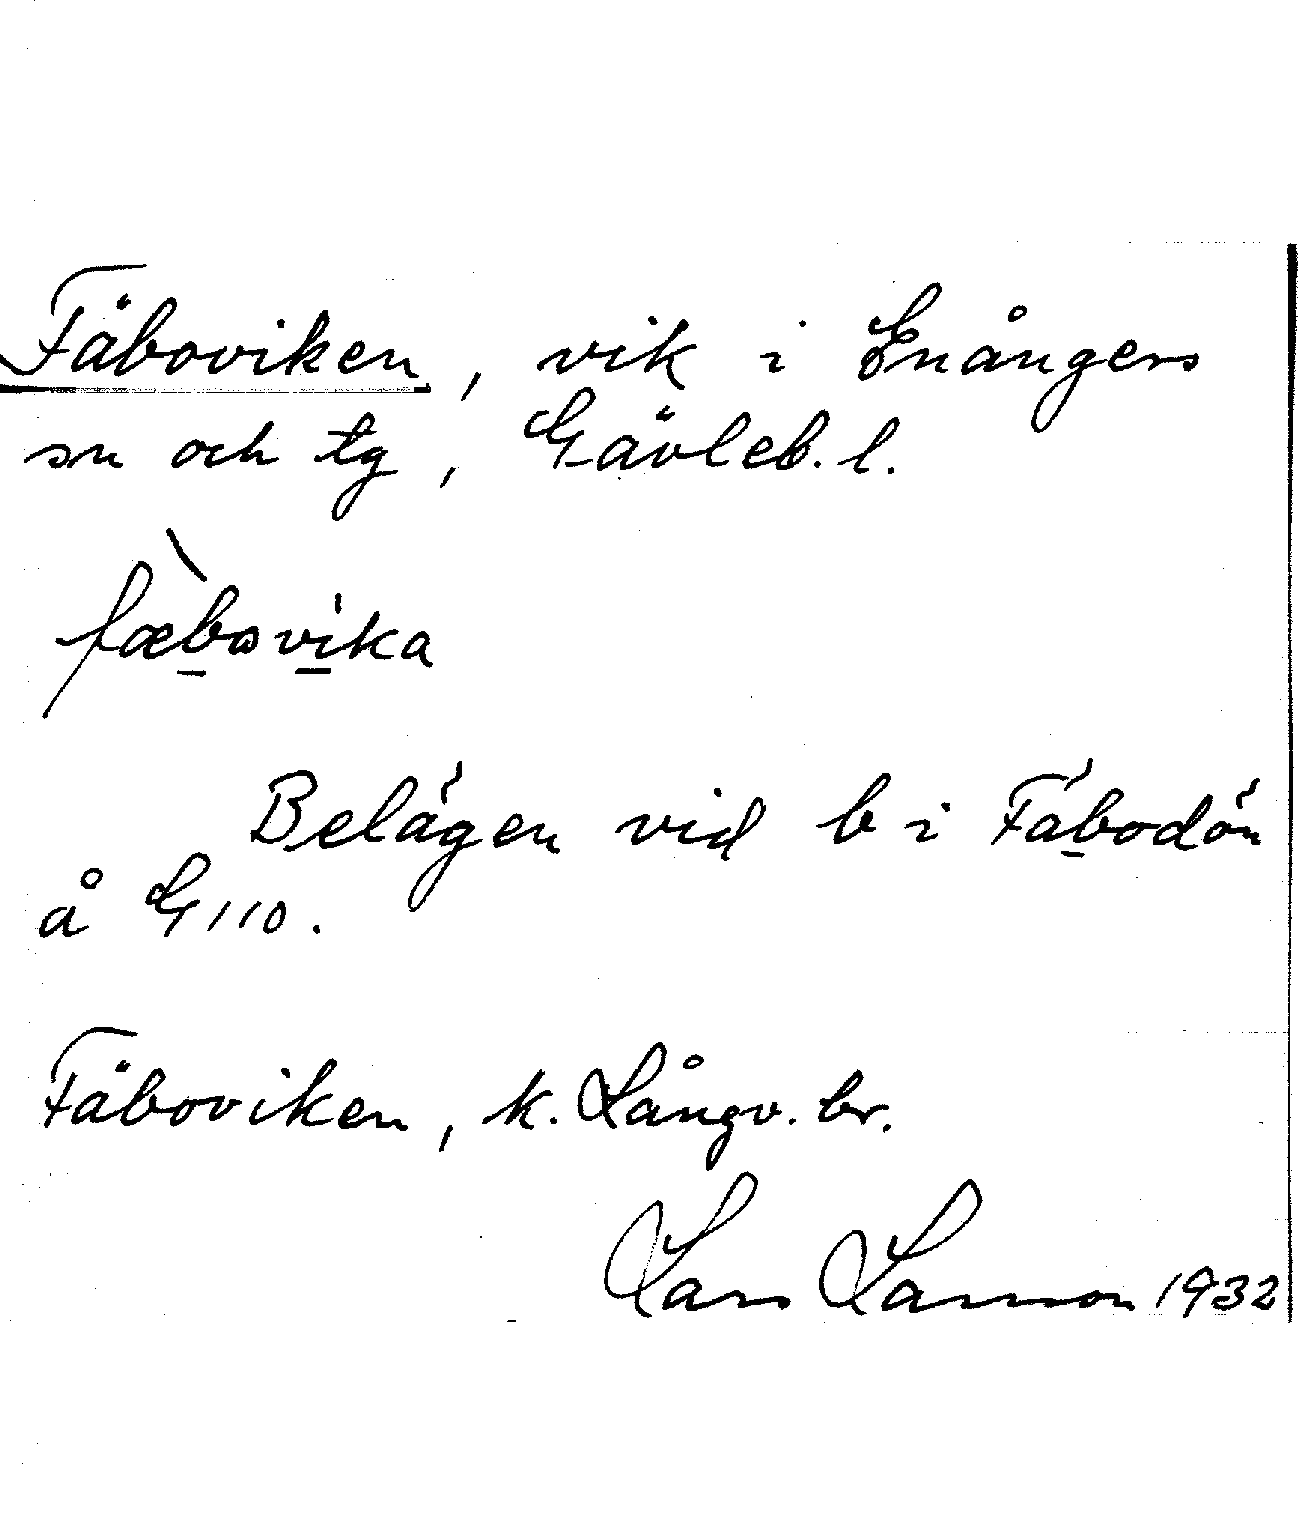 Fäboviken, vik i Enångers
sn och tg, Gävleb. l.
fæ̀bωvika
Belägen vid b i Fäbodön
å G110.
Fäboviken, k. Långv. br.
Lars Larsson 1932